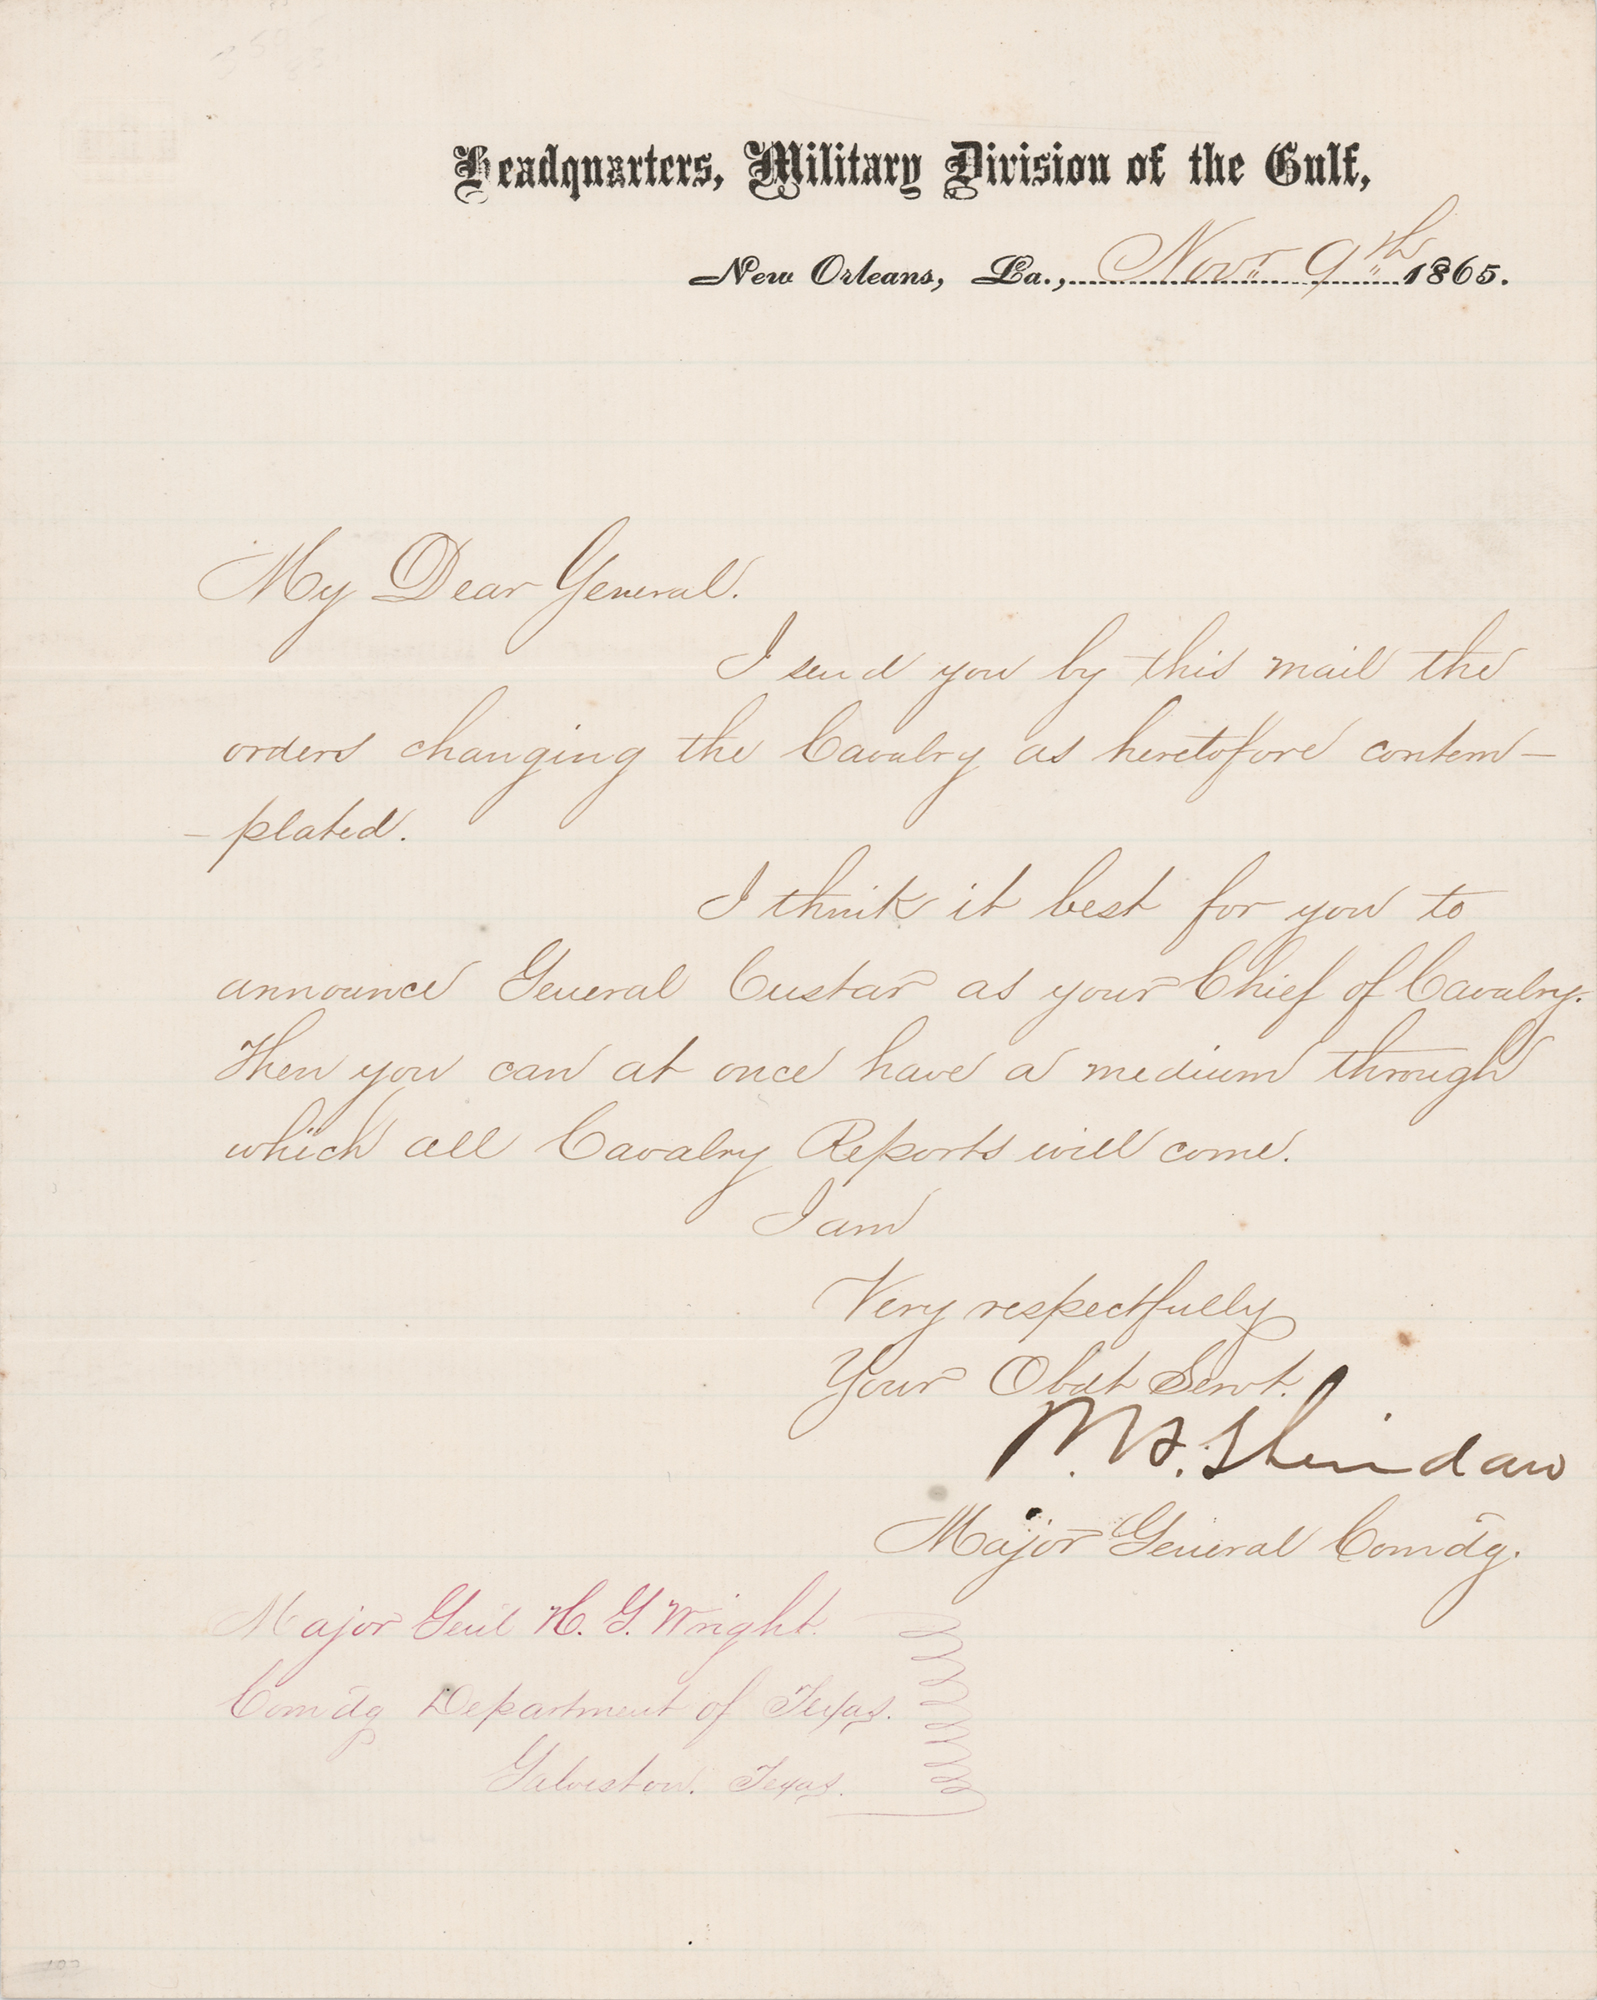 Headquarters, Military Division of the Gulf,
New Orleans, La., Novr 9th 1865.
My Dear General.
I send you by this mail the
orders changing the Cavalry as heretofore contem-
-plated.
I think it best for you to
announce General Custar as your Chief of Cavalry.
Then you can at once have a medium through
which all Cavalry Reports will come.
I am
Very respectfully
Your Obdt Servt.
P. H. Sheridan
Major General Comdg.
Major Genl H. G. Wright.
Comdg Department of Texas.
Galveston. Texas.